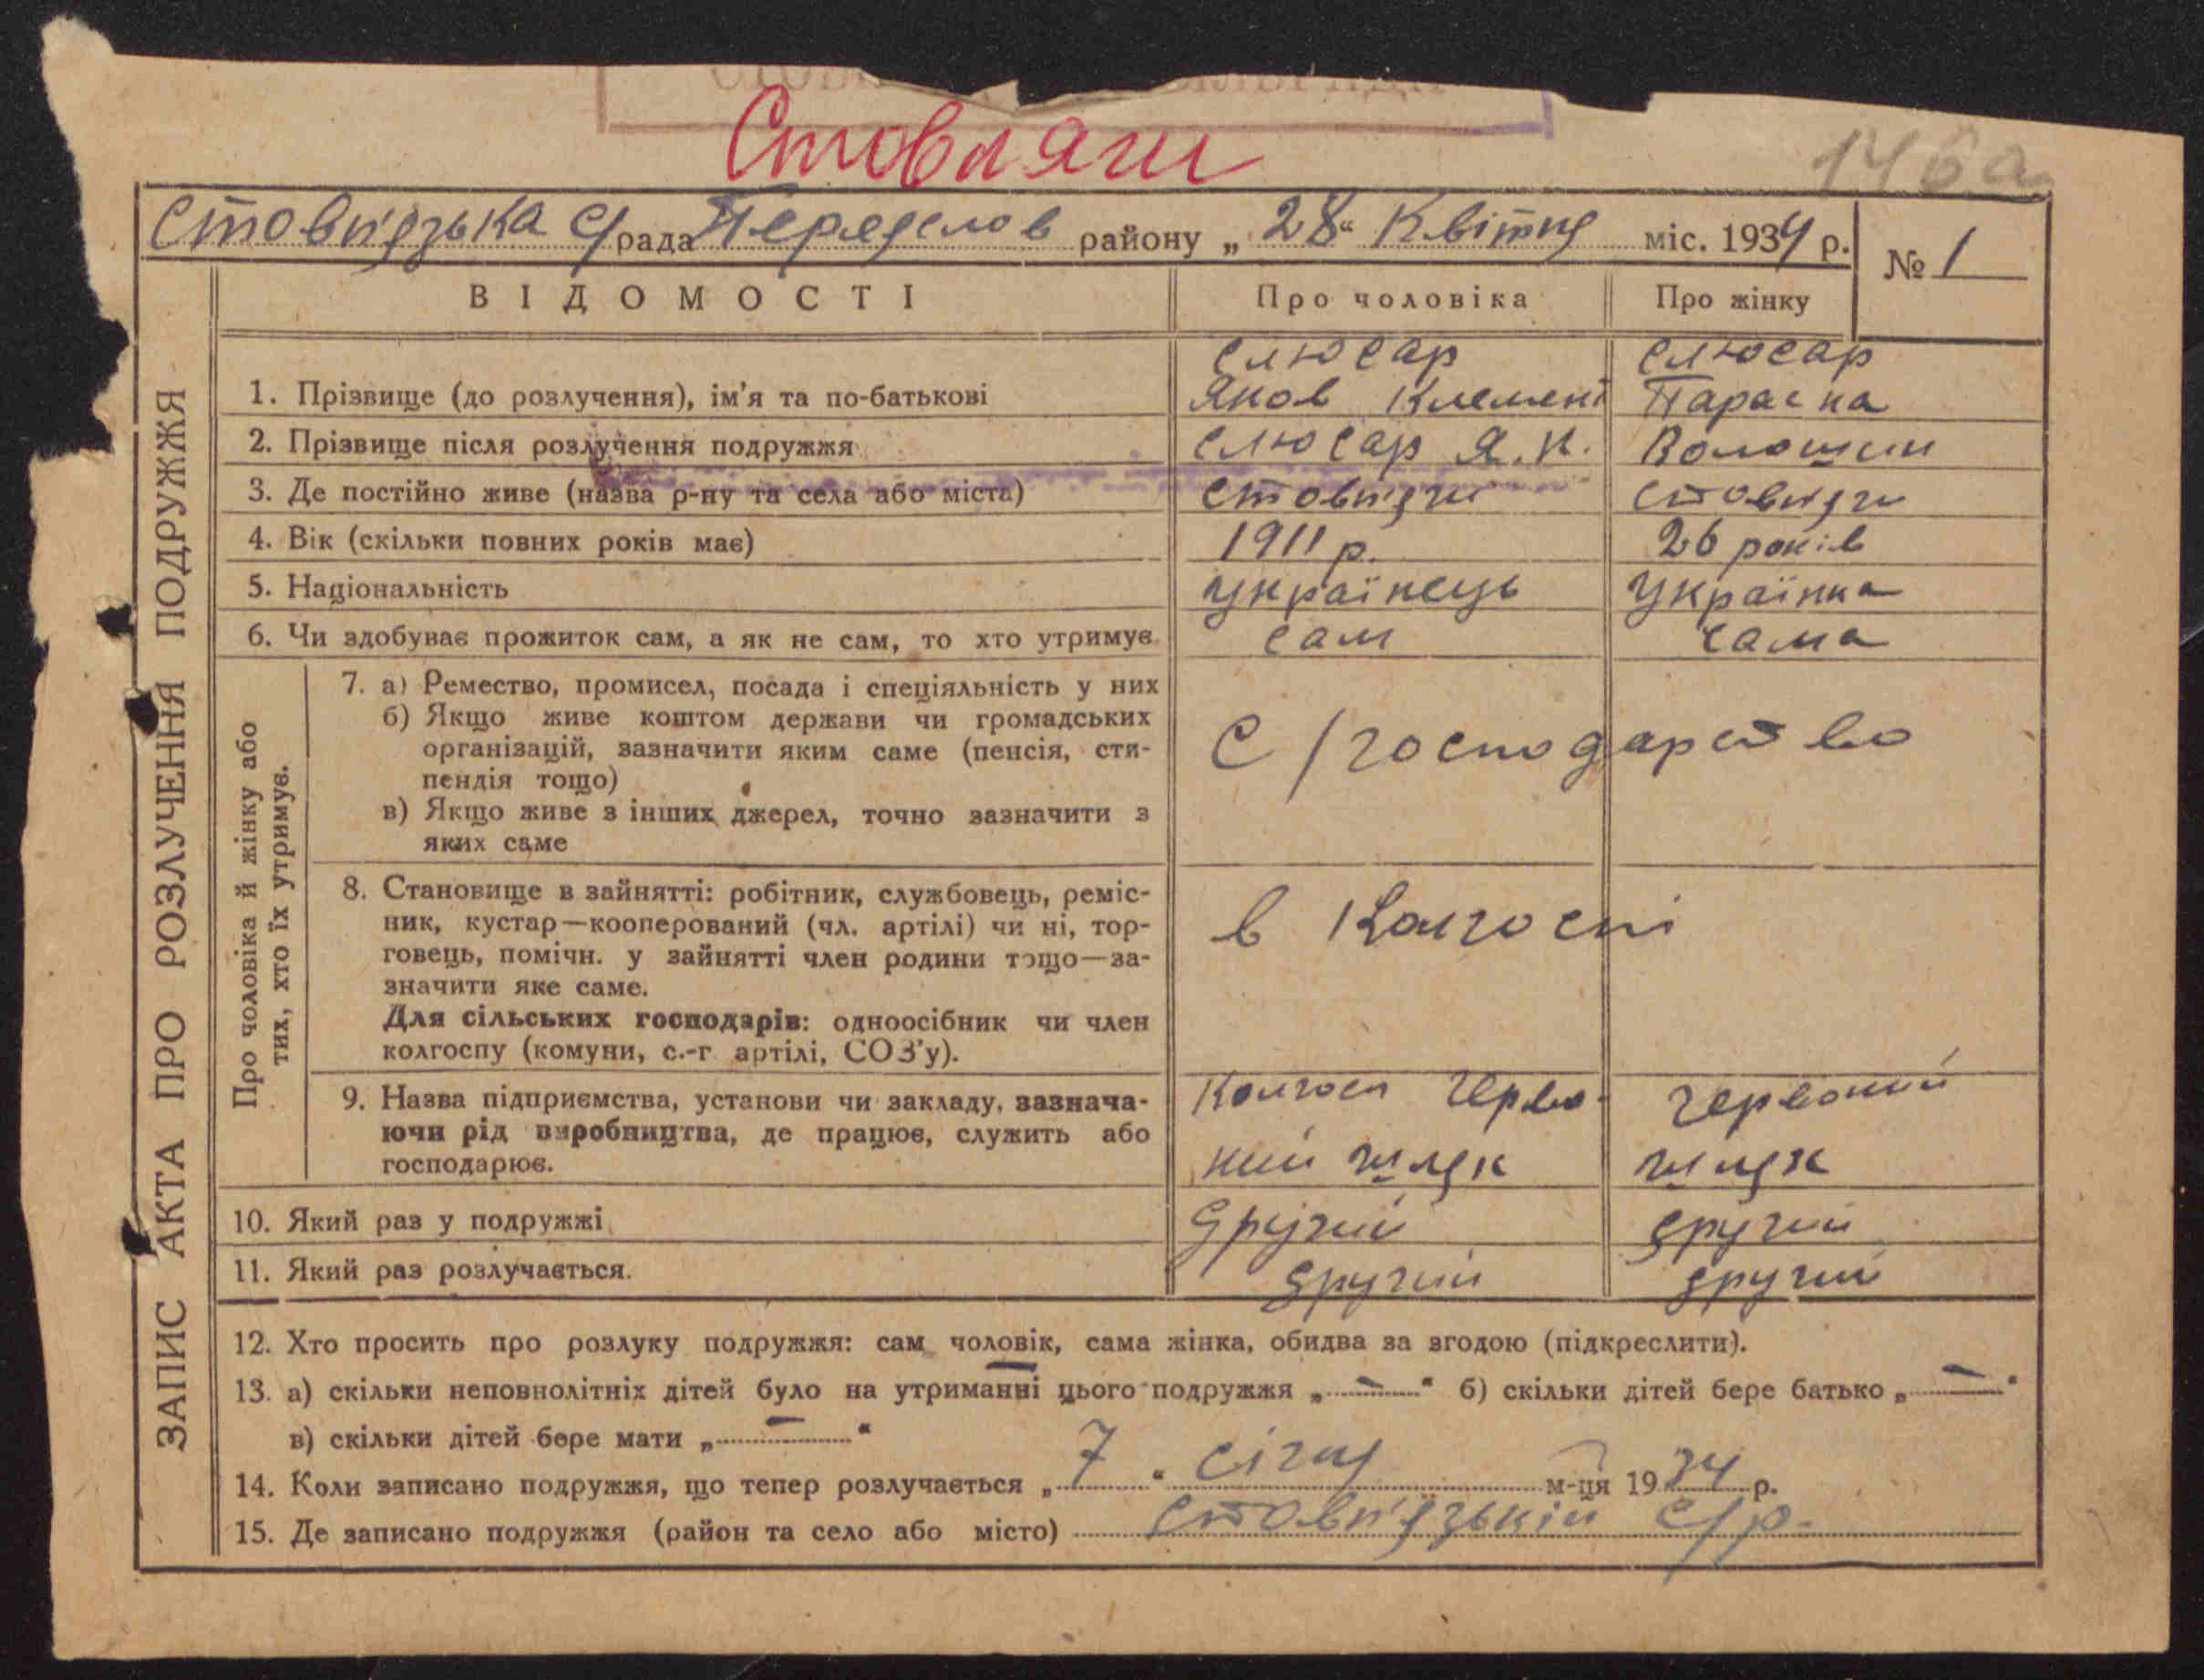 Стовпяги
146а
Стовп'язька С/рада Переяслов району „ 28 “ Квітня міс. 1934 р.
№ 1
ВІДОМОСТІ Про чоловіка Про жінку
Слюсар Слюсар
1. Прізвище (до розлучення), ім'я та по-батькові Яков Клемент Параска
2. Прізвище після розлучення подружжя Слюсар Я. К. Волошин
3. Де постійно живе (назва р-ну та села або міста) Стовп'яги Стовп'яги
4. Вік (скільки повних років має) 1911 р. 26 років
5. Національність Українець Українка
6. Чи здобуває прожиток сам, а як не сам, то хто утримує сам сама
Про чоловіка й жінку або
тих, хто їх утримує.
7. а) Ремество, промисел, посада і спеціяльність у них
б) Якщо живе коштом держави чи громадських
організацій, зазначити яким саме (пенсія, сти-
пендія тощо)
в) Якщо живе з інших джерел, точно зазначити з
яких саме
С/господарство
8. Становище в зайнятті: робітник, службовець, реміс-
ник, кустар—кооперований (чл. артілі) чи ні, тор-
говець, помічн. у зайнятті член родини тощо—за-
значити яке саме.
Для сільських господарів: одноосібник чи член
колгоспу (комуни, с.-г. артілі, СОЗ'у).
в Колгоспі
9. Назва підприємства, установи чи закладу, зазнача-
ючи рід виробництва, де працює, служить або
господарює.
Колгосп Черво- Червоний
ний шлях шлях
10. Який раз у подружжі Другий другий
11. Який раз розлучається. другий другий
12. Хто просить про розлуку подружжя: сам чоловік, сама жінка, обидва за згодою (підкреслити).
13. а) скільки неповнолітніх дітей було на утриманні цього подружжя „ — “ б) скільки дітей бере батько „ — “
в) скільки дітей бере мати „ — “
14. Коли записано подружжя, що тепер розлучається „ 7 “ січня м-ця 1934 р.
15. Де записано подружжя (район та село або місто) Стовп'язькій с/р.
ЗАПИС АКТА ПРО РОЗЛУЧЕННЯ ПОДРУЖЖЯ